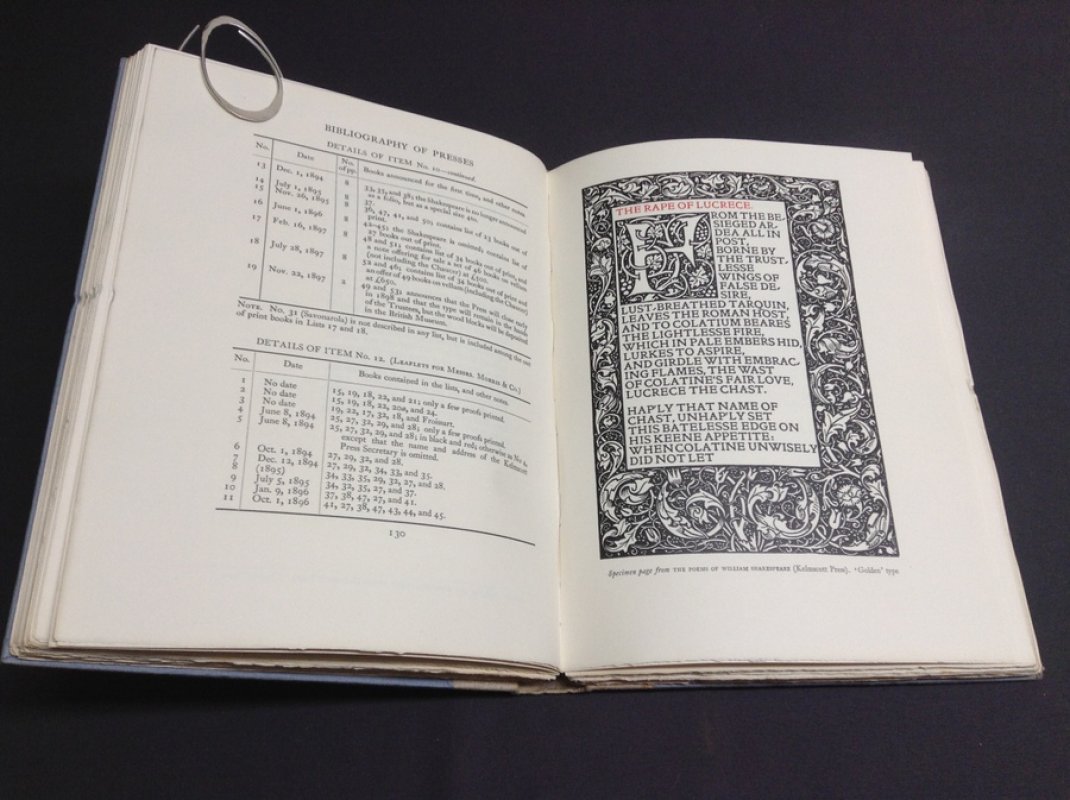 BIBLIOGRAPHY OF PRESSES
DETAILS OF ITEM No. 10—continued.
No. Date No. of pp. Books announced for the first time, and other notes.
13 Dec. 1, 1894 8 33, 35, and 38; the Shakespeare is no longer announced
as a folio, but as a special size 4to.
14 July 1, 1895 8 37.
15 Nov. 26, 1895 8 36, 47, 41, and 50; contains list of 23 books out of
print.
16 June 1, 1896 8 42-45; the Shakespeare is omitted; contains list of
27 books out of print.
17 Feb. 16, 1897 8 48 and 51; contains list of 34 books out of print, and
a note offering for sale a set of 46 books on vellum
(not including the Chaucer) at £510.
18 July 28, 1897 8 52 and 46; contains list of 34 books out of print and
an offer of 49 books on vellum (including the Chaucer)
at £650.
19 Nov. 22, 1897 2 49 and 53; announces that the Press will close early
in 1898 and that the type will remain in the hands
of the Trustees, but the wood blocks will be deposited
in the British Museum.
NOTE. No. 31 (Savonarola) is not described in any list, but is included among the out
of print books in Lists 17 and 18.
DETAILS OF ITEM No. 12. (LEAFLETS FOR MESSRS. MORRIS & CO.)
No. Date Books contained in the lists, and other notes.
1 No date 15, 19, 18, 22, and 21; only a few proofs printed.
2 No date 15, 19, 18, 22, 20a, and 24.
3 No date 19, 22, 17, 32, 18, and Froissart.
4 June 8, 1894 25, 27, 32, 29, and 28; only a few proofs printed.
5 June 8, 1894 25, 27, 32, 29, and 28; in black and red; otherwise as No. 4,
except that the name and address of the Kelmscott
Press Secretary is omitted.
6 Oct. 1, 1894 27, 29, 32, and 28.
7 Dec. 12, 1894 27, 29, 32, 34, 33, and 35.
8 (1895) 34, 33, 35, 29, 32, 27, and 28.
9 July 5, 1895 34, 32, 35, 27, and 37.
10 Jan. 9, 1896 37, 38, 47, 27, and 41.
11 Oct. 1, 1896 41, 27, 38, 47, 43, 44, and 45.
130
THE RAPE OF LUCRECE.
FROM THE BE-
SIEGED AR-
DEA ALL IN
POST,
BORNE BY
THE TRUST-
LESSE
WINGS OF
FALSE DE-
SIRE,
LUST-BREATHED TARQUIN,
LEAVES THE ROMAN HOST,
AND TO COLATIUM BEARES
THE LIGHTLESSE FIRE,
WHICH IN PALE EMBERS HID,
LURKES TO ASPIRE,
AND GIRDLE WITH EMBRAC-
ING FLAMES, THE WAST
OF COLATINE'S FAIR LOVE,
LUCRECE THE CHAST.
HAP'LY THAT NAME OF
CHAST, UNHAP'LY SET
THIS BATELESSE EDGE ON
HIS KEENE APPETITE;
WHEN COLATINE UNWISELY
DID NOT LET
Specimen page from THE POEMS OF WILLIAM SHAKESPEARE (Kelmscott Press). 'Golden' type